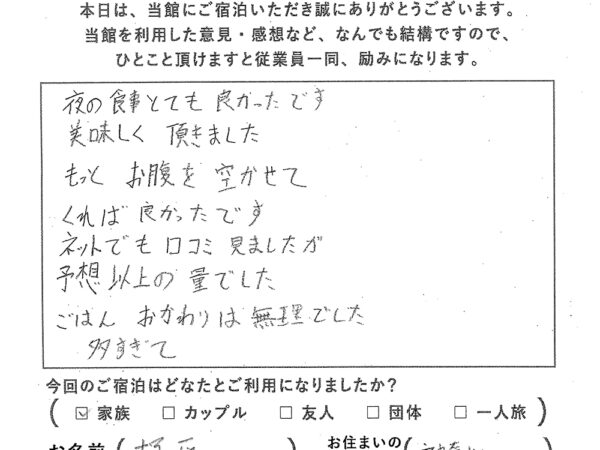 本日は、当館にご宿泊いただき誠にありがとうございます。
当館を利用した意見・感想など、なんでも結構ですので、
ひとこと頂けますと従業員一同、励みになります。
夜の食事とても良かったです
美味しく 頂きました
もっと お腹を 空かせて
くれば 良かったです
ネットでも 口コミ 見ましたが
予想以上の 量でした
ごはん おかわりは 無理でした
多すぎて
今回のご宿泊はどなたとご利用になりましたか?
( ☑ 家族 □ カップル □ 友人 □ 団体 □ 一人旅 )
お名前 ( ) お住まいの (